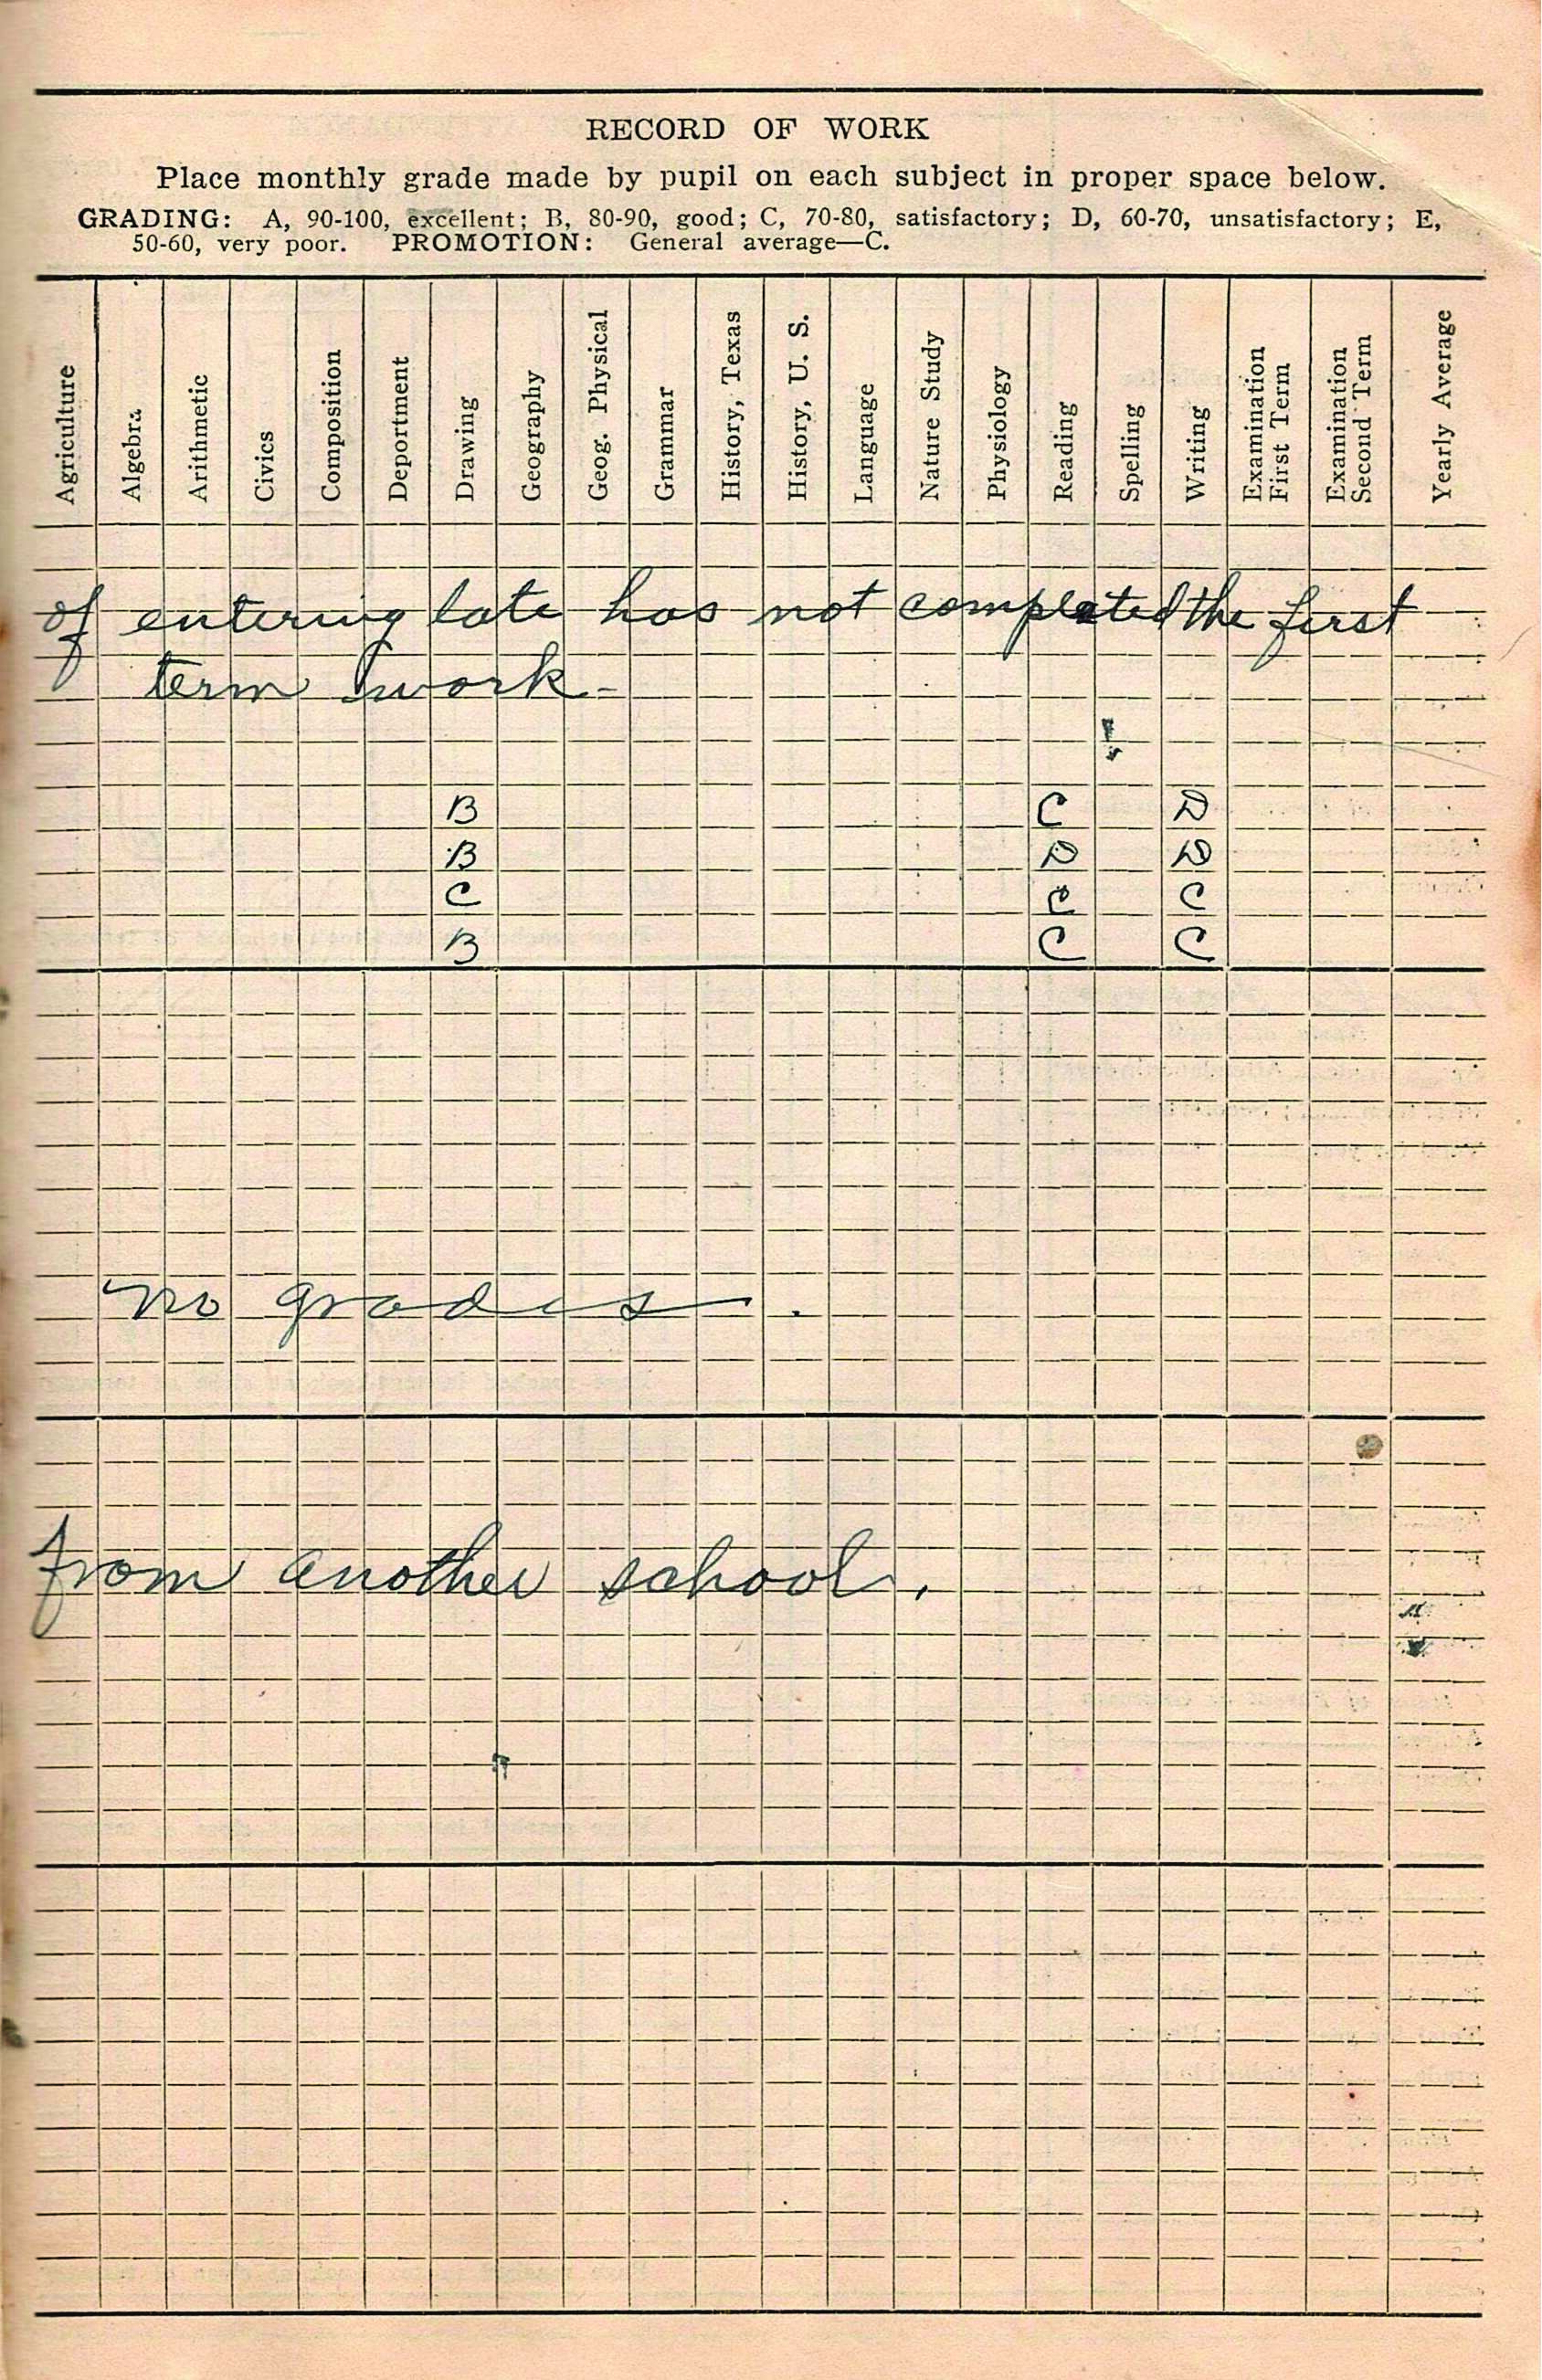 RECORD OF WORK
Place monthly grade made by pupil on each subject in proper space below.
GRADING: A, 90-100, excellent; B, 80-90, good; C, 70-80, satisfactory; D, 60-70, unsatisfactory; E,
50-60, very poor. PROMOTION: General average—C.
Agriculture
Algebra
Arithmetic
Civics
Composition
Deportment
Drawing
Geography
Geog. Physical
Grammar
History, Texas
History, U. S.
Language
Nature Study
Physiology
Reading
Spelling
Writing
Examination
First Term
Examination
Second Term
Yearly Average
of entering late has not completed the first
term work-
B C D
B D D
C C C
B C C
no grades.
from another school.